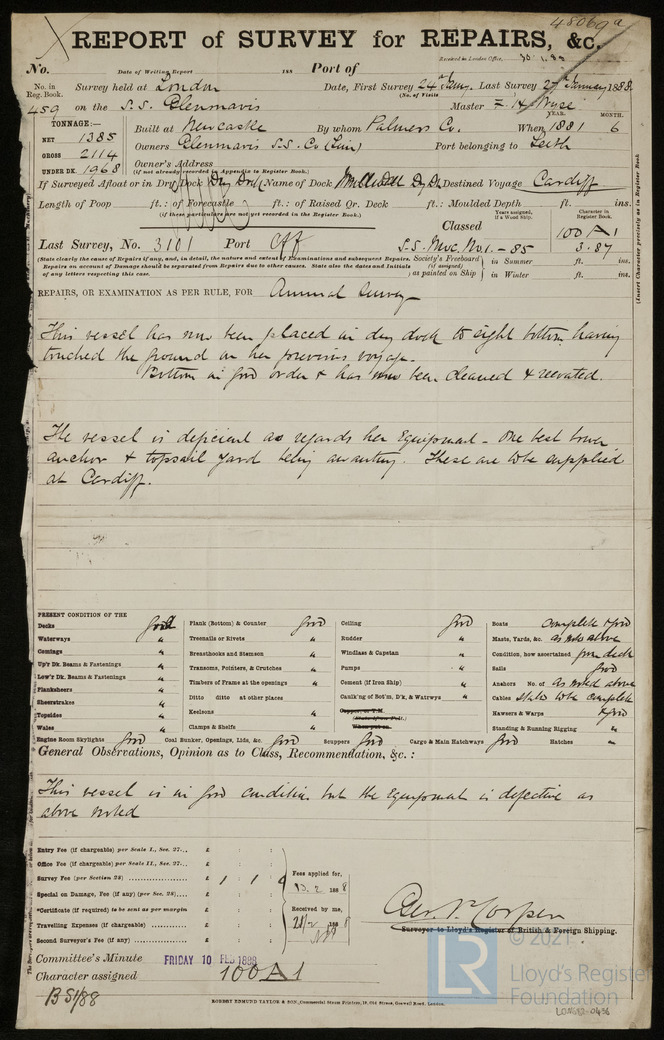 48069a
REPORT of SURVEY for REPAIRS, &c.
Received in London Office,
No. Date of Writing Report 188 Port of
No. in Reg. Book. Survey held at London Date, First Survey 24th Jany. Last Survey 27th January 1888.
(No. of Visits )
459 on the S.S. Glenmavis Master
TONNAGE:— YEAR. MONTH.
NET 1385 Built at Newcastle By whom Palmers Co. When 1881 6
GROSS 2114 Owners Glenmavis S.S. Co (Lim) Port belonging to Leith
UNDER DK. 1968 Owner's Address
(if not already recorded in Appendix to Register Book.)
If Surveyed Afloat or in Dry Dock Dry Dock Name of Dock Millwall Dy Dk Destined Voyage Cardiff
Length of Poop ft.: of Forecastle ft.: of Raised Qr. Deck ft.: Moulded Depth ft. ins.
(if these particulars are not yet recorded in the Register Book.)
Years assigned, if a Wood Ship. Character in Register Book.
Classed 100A1
Last Survey, No. 3101 Port Cff S.S. No. 1. - 85 3.87
(State clearly the cause of Repairs if any, and, in detail, the nature and extent of Examinations and subsequent Repairs.
Repairs on account of Damage should be separated from Repairs due to other causes. State also the dates and initials
of any letters respecting this case.)
Society's Freeboard (if assigned) as painted on Ship in Summer ft. ins.
in Winter ft. ins.
(Insert Character precisely as in Register Book
REPAIRS, OR EXAMINATION AS PER RULE, FOR Annual Survey
This vessel has now been placed in dry dock to sight bottom having
touched the ground on her previous voyage.
Bottom in good order & has now been cleaned & recoated.
The vessel is deficient as regards her Equipment - one best bower
anchor & topsail yard being awanting. These are to be supplied
at Cardiff.
PRESENT CONDITION OF THE
Decks good
Waterways "
Comings "
Up'r Dk. Beams & Fastenings "
Low'r Dk. Beams & Fastenings "
Planksheers "
Sheerstrakes "
Topsides "
Wales "
Engine Room Skylights good
Plank (Bottom) & Counter good
Treenails or Rivets "
Breasthooks and Stemson "
Transoms, Pointers, & Crutches "
Timbers of Frame at the openings "
Ditto ditto at other places
Keelsons "
Clamps & Shelfs "
Coal Bunker, Openings, Lids, &c. good
Ceiling good
Rudder "
Windlass & Capstan "
Pumps "
Cement (if Iron Ship) "
Caulk'ng of Bot'm, D'k, & Watrwys "
Scuppers good
Cargo & Main Hatchways good
Boats complete & good
Masts, Yards, &c. as noted above
Condition, how ascertained from deck
Sails good
Anchors No. of as noted above
Cables stated to be complete
Hawsers & Warps & good
Standing & Running Rigging "
Hatches "
General Observations, Opinion as to Class, Recommendation, &c.:
This vessel is in good condition but the Equipment is defective as
above noted
Entry Fee (if chargeable) per Scale I., Sec. 27... £ : :
Office Fee (if chargeable) per Scale II., Sec. 27... £ : :
Survey Fee (per Section 28) £ 1 : 1 :
Special on Damage, Fee (if any) (per Sec. 28).... £ : :
*Certificate (if required) to be sent as per margin £ : :
Travelling Expenses (if chargeable) £ : :
Second Surveyor's Fee (if any) £ : :
Fees applied for,
10.2. 1888
Received by me,
21/2 1888
Surveyor to Lloyd's Register of British & Foreign Shipping.
Committee's Minute FRIDAY 10 FEB 1888
Character assigned 100A1
ROBERT EDMUND TAYLOR & SON, Commercial Steam Printers, 19, Old Street, Goswell Road, London.
LR
© 2021
Lloyd's Register
Foundation